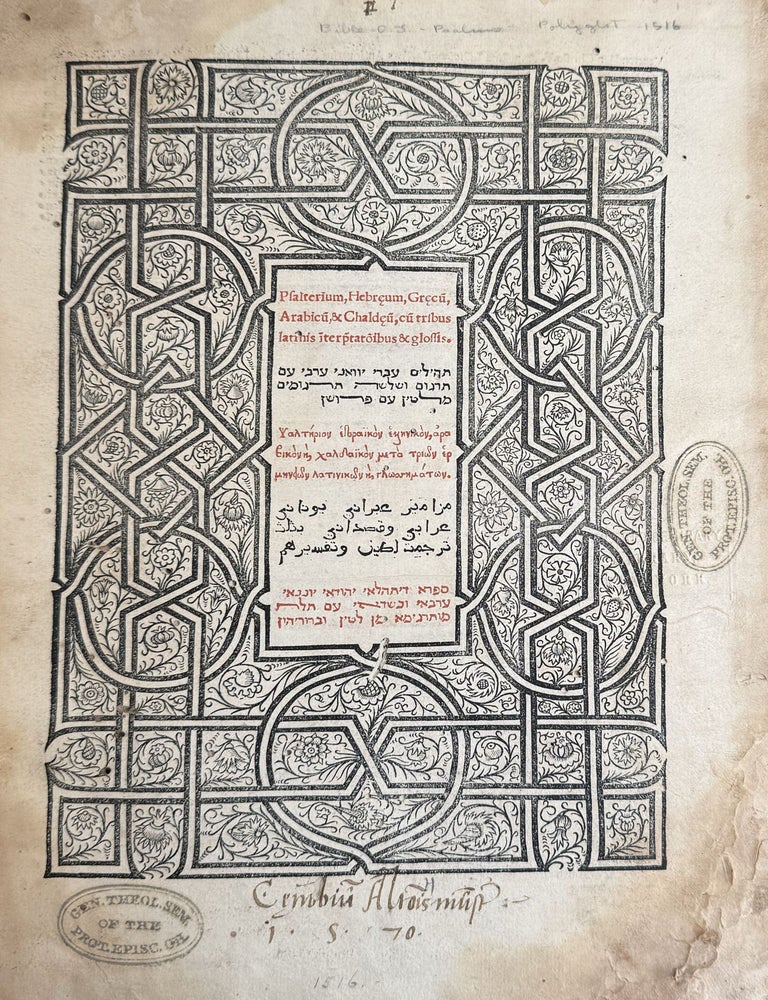 Bible O.T. - Psalms - Polyglot 1516
Psalterium, Hebręum, Gręcū,
Arabicū, & Chaldęū, cū tribus
latinis ĩterp̃tatõibus & glossis.
תהילים עברי יוואני ערבי עם
תרגום ושלשה תרגומים
מלטין עם פירושן
Ψαλτήριον ἑβραϊκὸν ἑλληνικὸν, ἀρα
βικὸν ϗ χαλδαϊκὸν μετὰ τριῶν ἑρ
μηνειῶν λατινικῶν ϗ γλωσσημάτων.
مزامير عبراني يوناني
عرابي وقصداني بثلث
ترجمت لطين وتفسيرهم
ספרא דיתהלאי יהודאי יוננאי
ערבאי וכשדאי עם תלת
מותרגימא מן לטין ופירושיהון
GEN. THEOL. SEM.
OF THE
PROT. EPISC. CH.
1 5 70
GEN. THEOL. SEM.
OF THE
PROT. EPISC. CH.
1516.